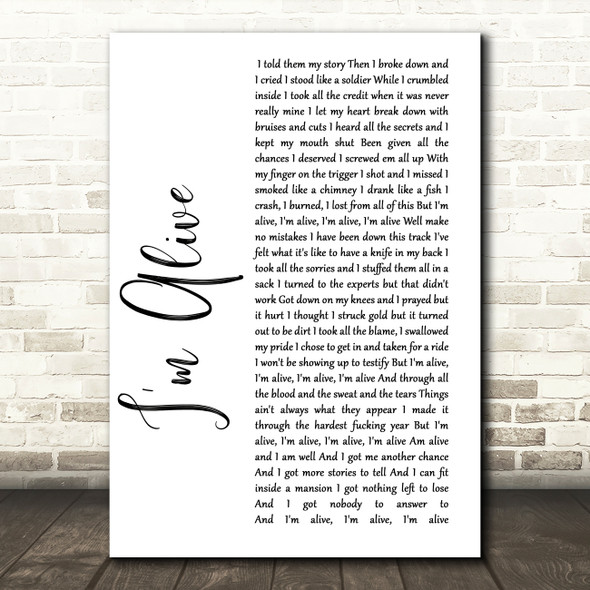 I'm Alive
I told them my story Then I broke down and
I cried I stood like a soldier While I crumbled
inside I took all the credit when it was never
really mine I let my heart break down with
bruises and cuts I heard all the secrets and I
kept my mouth shut Been given all the
chances I deserved I screwed em all up With
my finger on the trigger I shot and I missed I
smoked like a chimney I drank like a fish I
crash, I burned, I lost from all of this But I'm
alive, I'm alive, I'm alive, I'm alive Well make
no mistakes I have been down this track I've
felt what it's like to have a knife in my back I
took all the sorries and I stuffed them all in a
sack I turned to the experts but that didn't
work Got down on my knees and I prayed but
it hurt I thought I struck gold but it turned
out to be dirt I took all the blame, I swallowed
my pride I chose to get in and taken for a ride
I won't be showing up to testify But I'm alive,
I'm alive, I'm alive, I'm alive And through all
the blood and the sweat and the tears Things
ain't always what they appear I made it
through the hardest fucking year But I'm
alive, I'm alive, I'm alive, I'm alive Am alive
and I am well And I got me another chance
And I got more stories to tell And I can fit
inside a mansion I got nothing left to lose
And I got nobody to answer to
And I'm alive, I'm alive, I'm alive